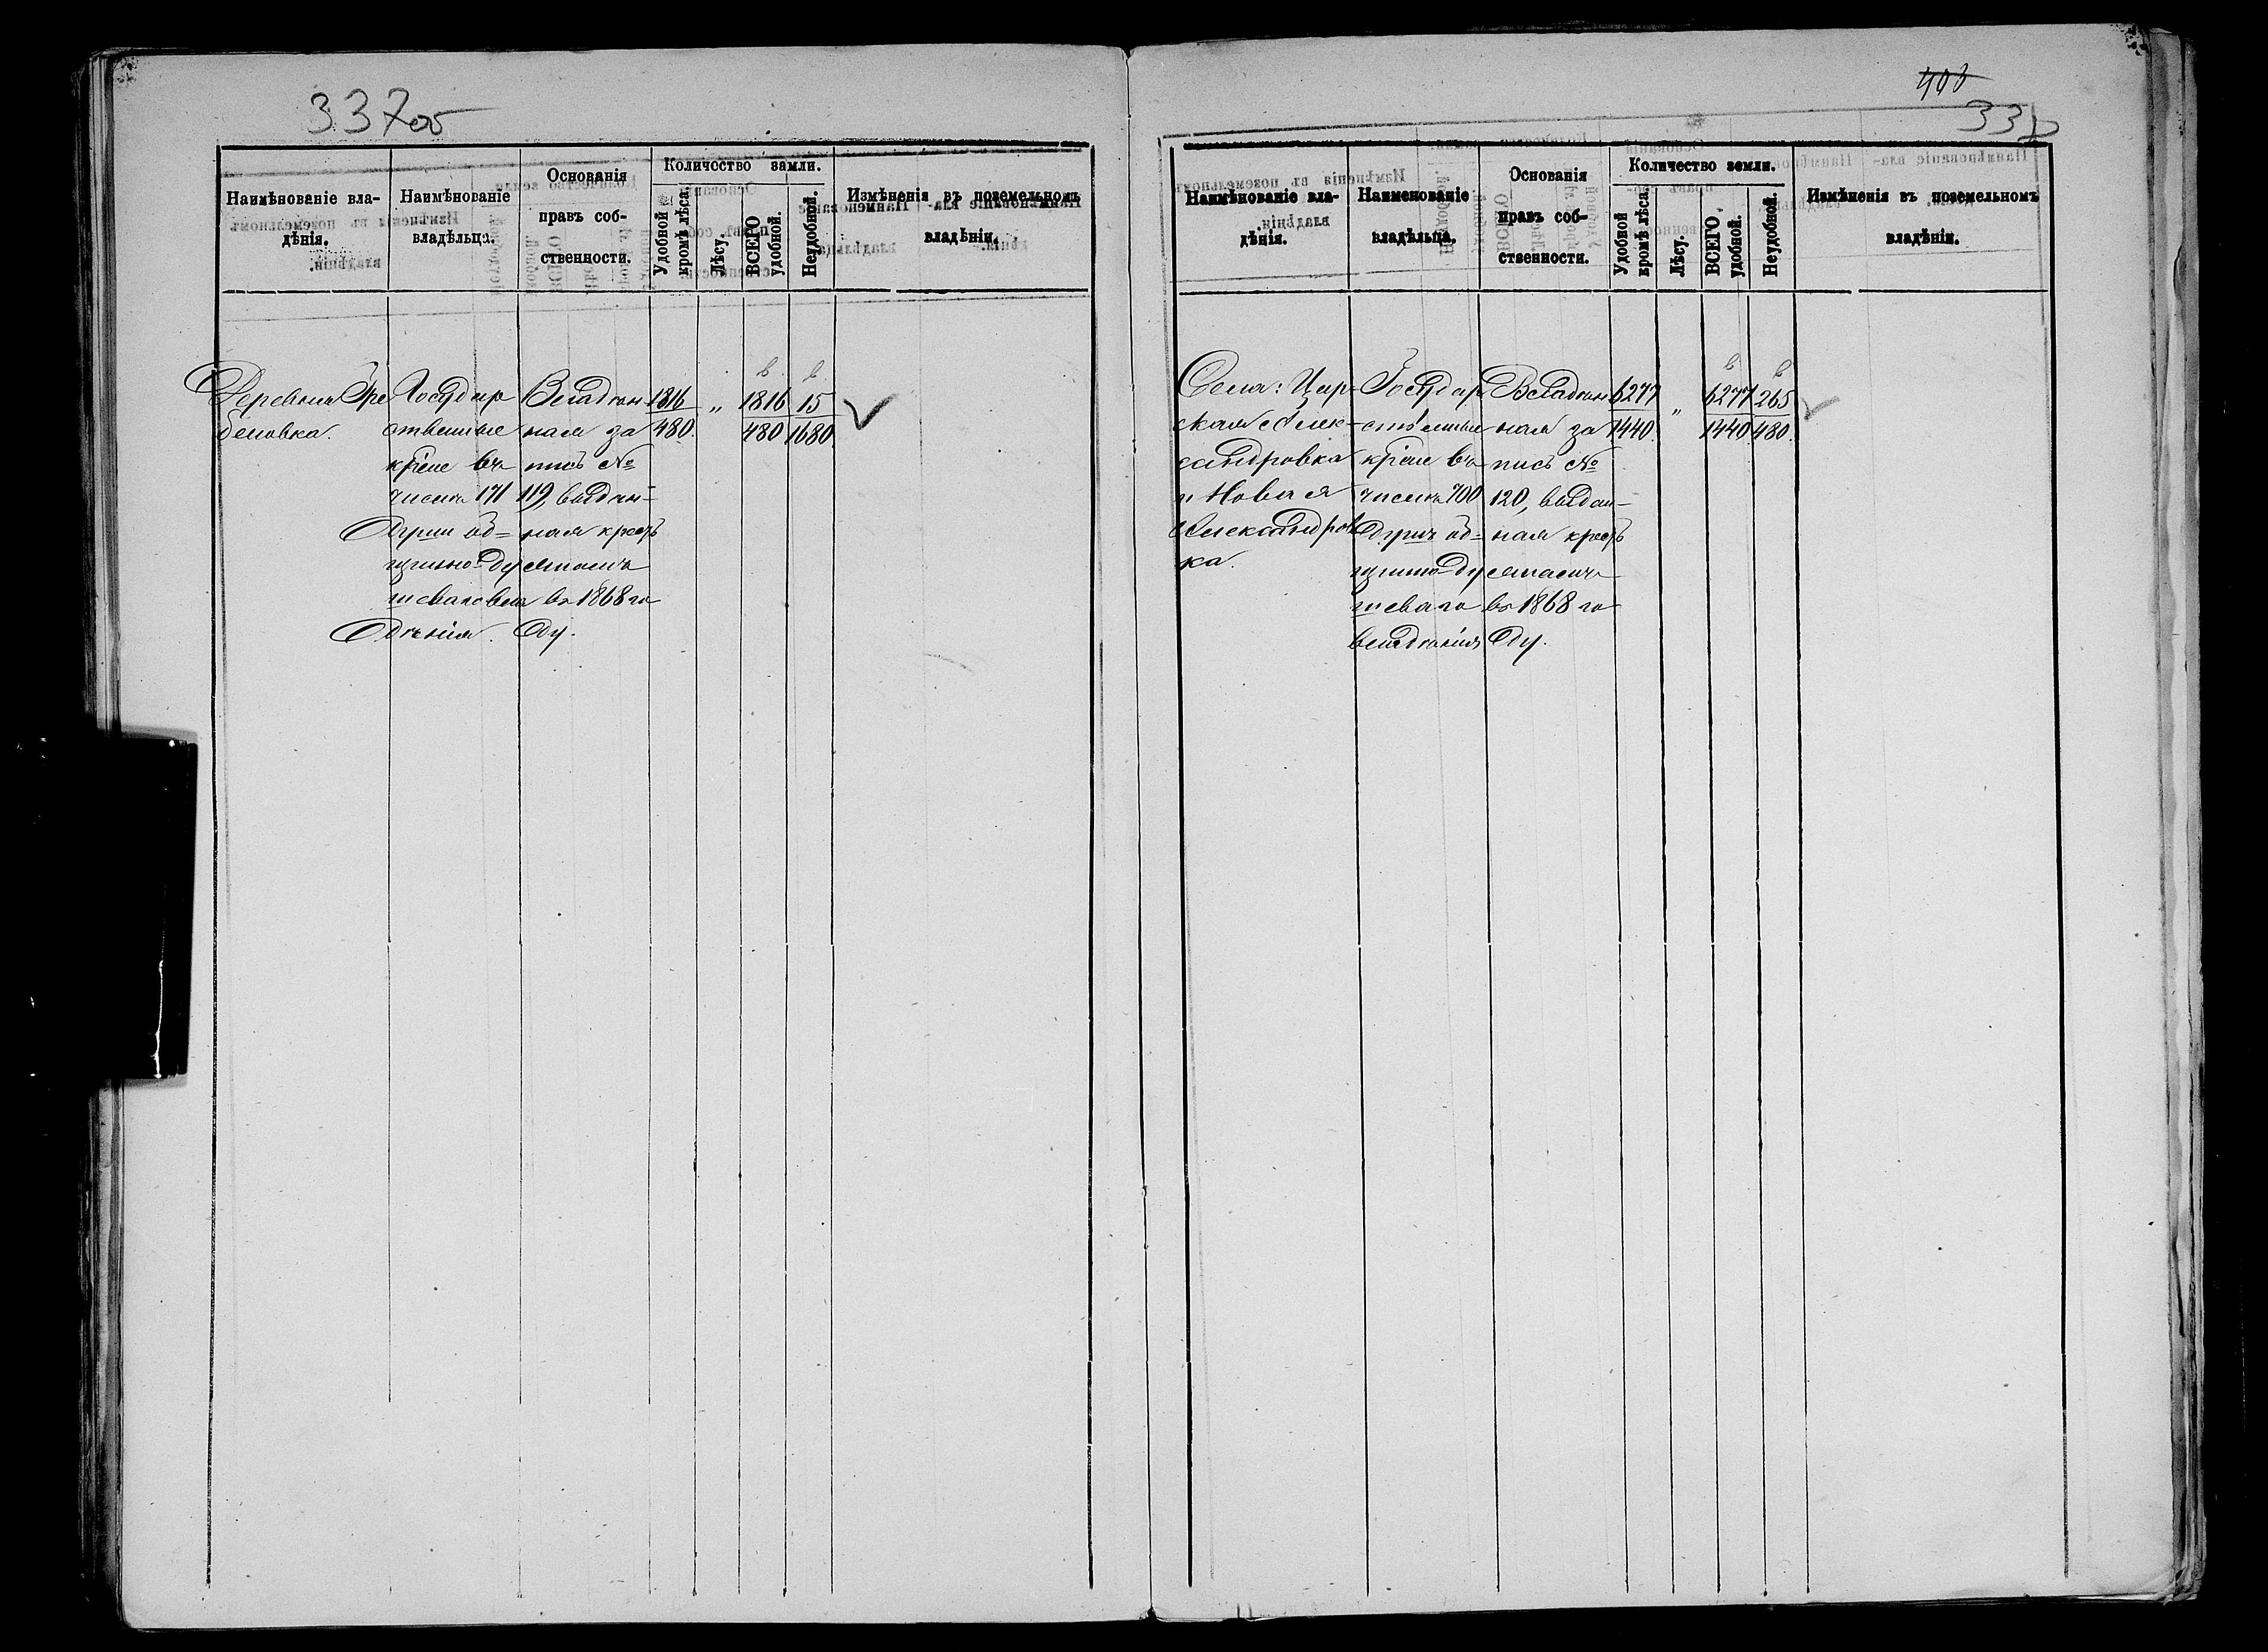 337об
Наимѣнованіе вла-
дѣнія.
Наимѣнованіе
владѣльца.
Основанія
правъ соб-
ственности.
Количество земли.
Удобной
кромѣ лѣса.
Лѣсу.
ВСЕГО
удобной.
Неудобной.
Измѣненія въ поземельномъ
владѣніи.
Деревня Гре
беновка.
Государ
ственные
кр҃не въ
числѣ 171
души об=
щинно-ду
шеваго вла
дѣнія.
Владѣн-
ная за
пись №
119, выдан-
ная крест҃ь
янамъ
въ 1868 го
ду.
1816
480.
„
1816
480
15
1680
403
338
Наимѣнованіе вла-
дѣнія.
Наименованіе
владѣльца.
Основанія
правъ соб-
ственности.
Количество земли.
Удобной
кромѣ лѣса.
Лѣсу.
ВСЕГО
удобной.
Неудобной.
Измѣненія въ поземельномъ
владѣніи.
Села: Цар-
ская Алек-
сандровка
и Новая
Александров
ка.
Государ
ственные
кр҃не въ
числѣ 700
душъ об=
щинно-ду
шеваго
владѣнія
Владѣн
ная за
пись №
120, выдан-
ная крест҃ь
янамъ
въ 1868 го
ду.
6277
1440.
„
6277
1440
265
480.